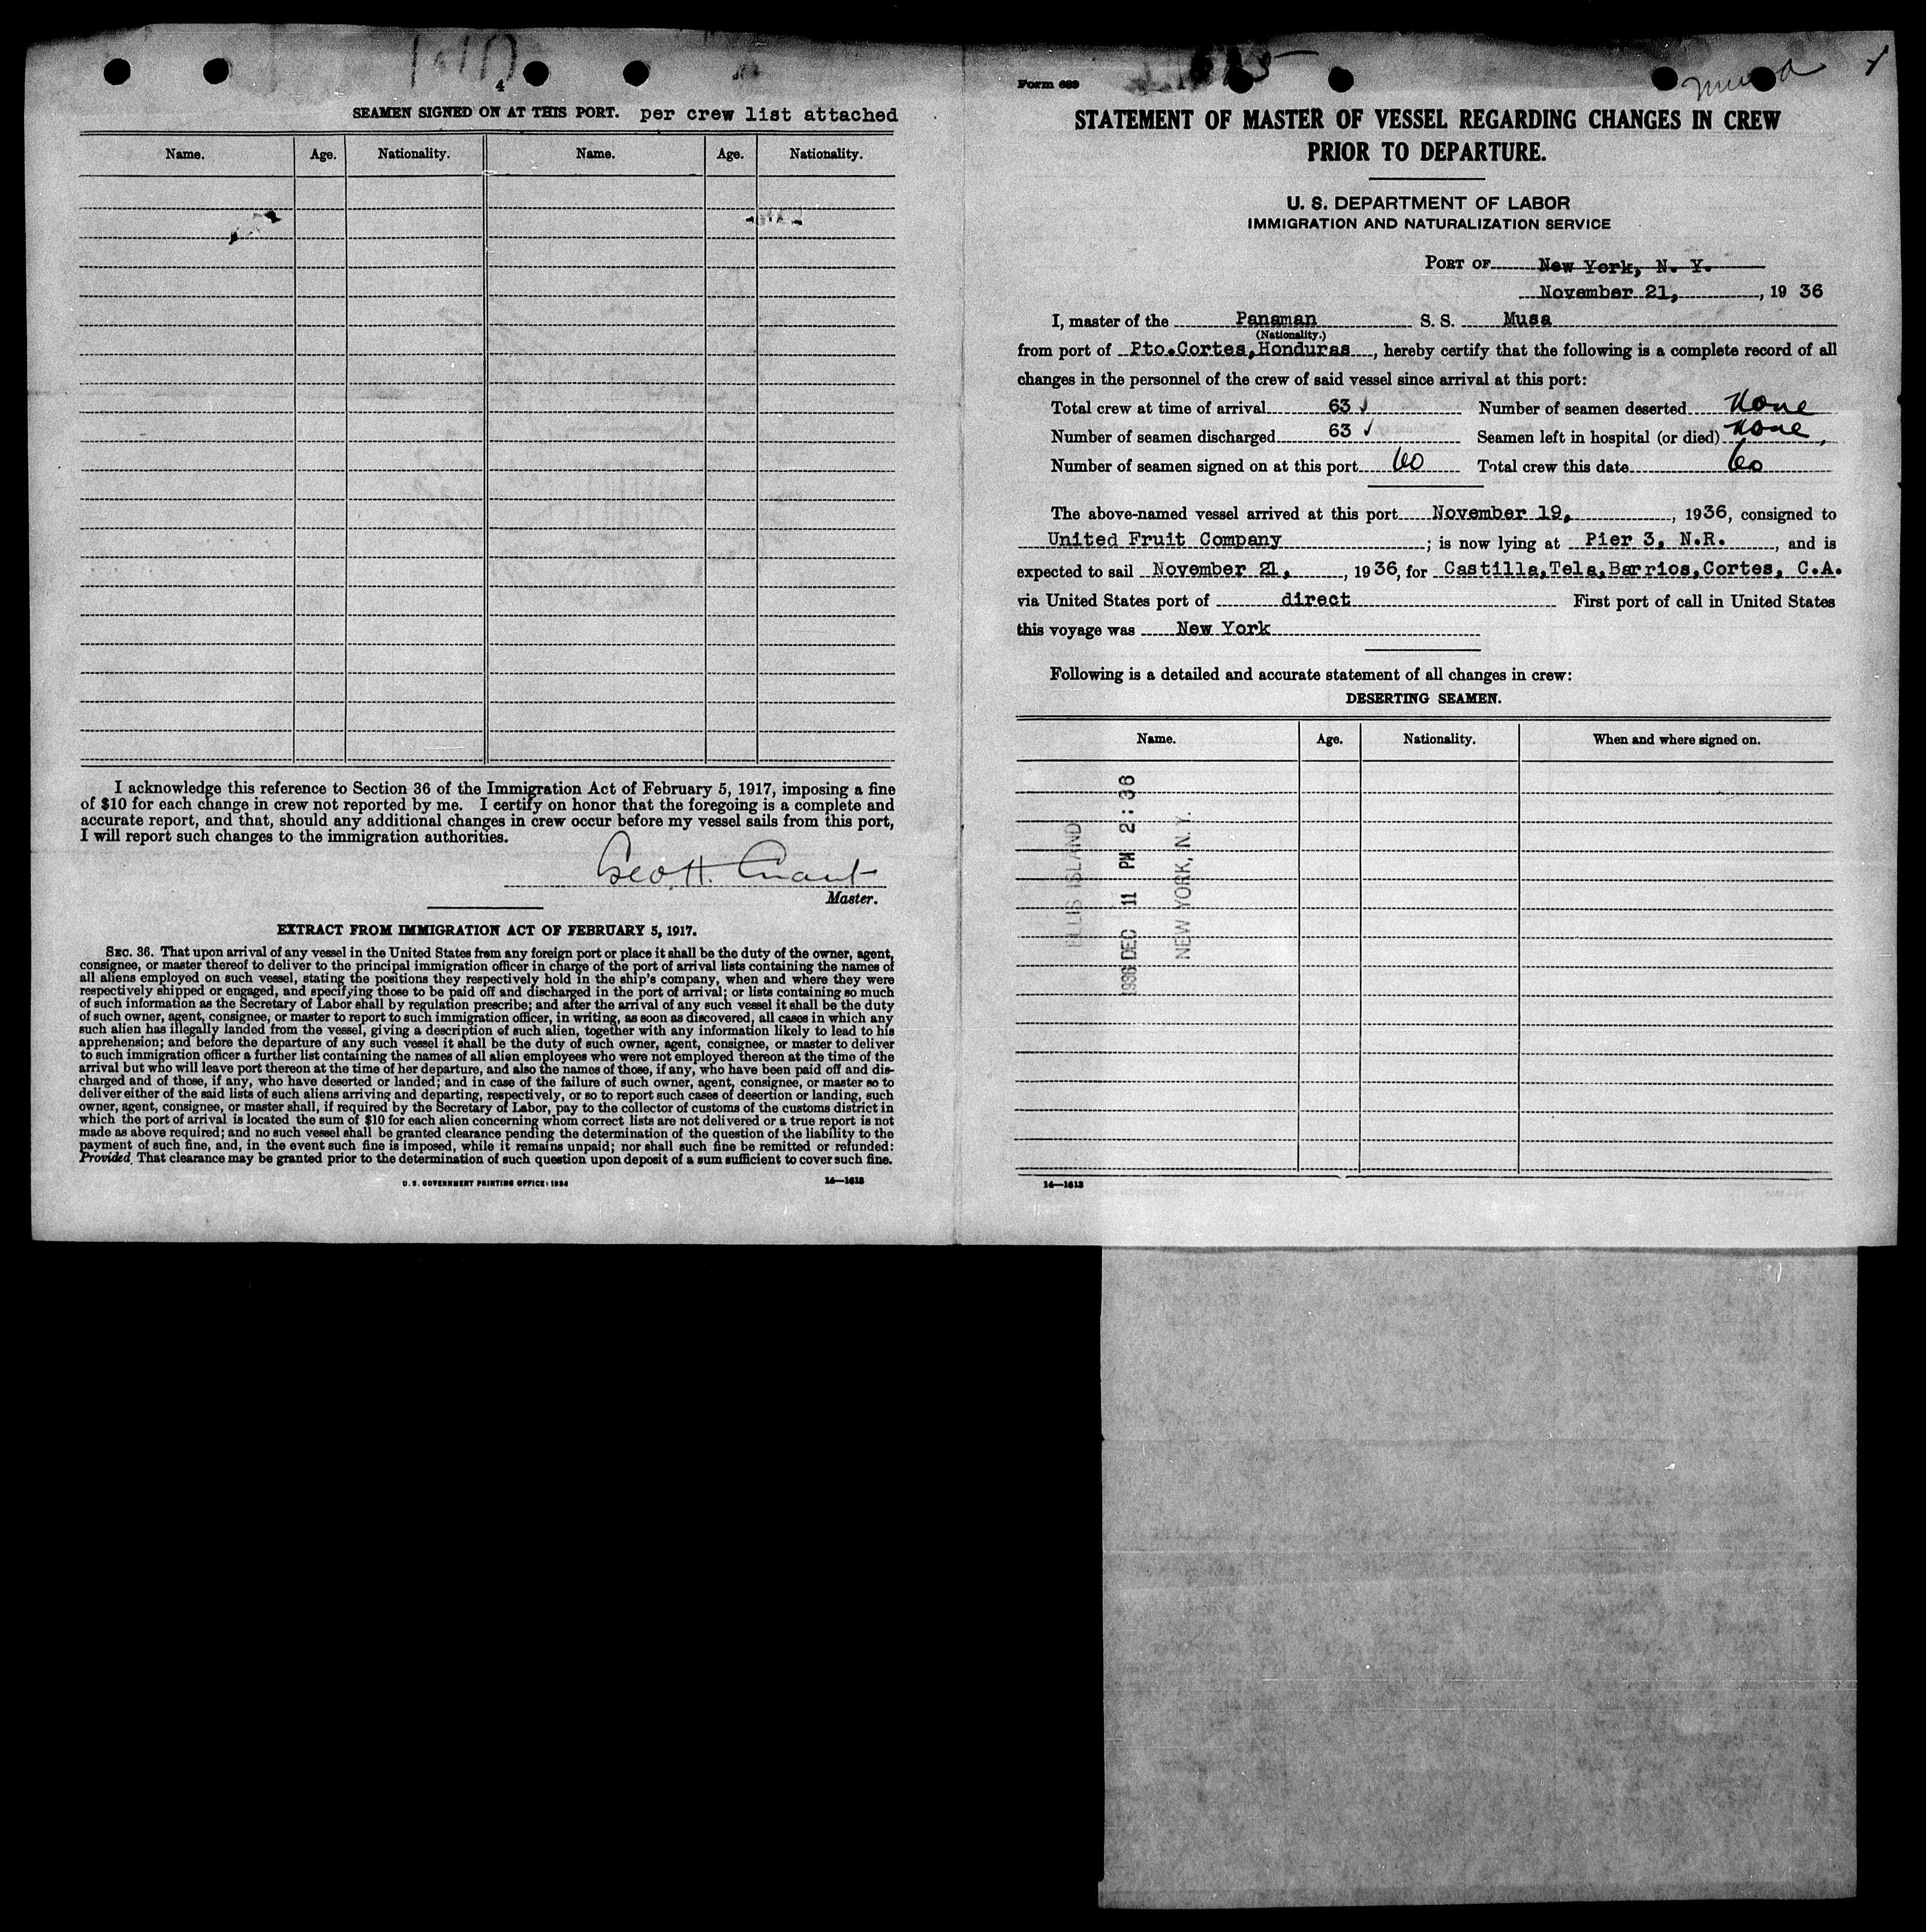 4
SEAMEN SIGNED ON AT THIS PORT. per crew list attached
Name. Age. Nationality. Name. Age. Nationality.
I acknowledge this reference to Section 36 of the Immigration Act of February 5, 1917, imposing a fine
of $10 for each change in crew not reported by me. I certify on honor that the foregoing is a complete and
accurate report, and that, should any additional changes in crew occur before my vessel sails from this port,
I will report such changes to the immigration authorities.
Geo. H. Grant
Master.
EXTRACT FROM IMMIGRATION ACT OF FEBRUARY 5, 1917.
SEC. 36. That upon arrival of any vessel in the United States from any foreign port or place it shall be the duty of the owner, agent,
consignee, or master thereof to deliver to the principal immigration officer in charge of the port of arrival lists containing the names of
all aliens employed on such vessel, stating the positions they respectively hold in the ship's company, when and where they were
respectively shipped or engaged, and specifying those to be paid off and discharged in the port of arrival; or lists containing so much
of such information as the Secretary of Labor shall by regulation prescribe; and after the arrival of any such vessel it shall be the duty
of such owner, agent, consignee, or master to report to such immigration officer, in writing, as soon as discovered, all cases in which any
such alien has illegally landed from the vessel, giving a description of such alien, together with any information likely to lead to his
apprehension; and before the departure of any such vessel it shall be the duty of such owner, agent, consignee, or master to deliver
to such immigration officer a further list containing the names of all alien employees who were not employed thereon at the time of the
arrival but who will leave port thereon at the time of her departure, and also the names of those, if any, who have been paid off and dis-
charged and of those, if any, who have deserted or landed; and in case of the failure of such owner, agent, consignee, or master so to
deliver either of the said lists of such aliens arriving and departing, respectively, or so to report such cases of desertion or landing, such
owner, agent, consignee, or master shall, if required by the Secretary of Labor, pay to the collector of customs of the customs district in
which the port of arrival is located the sum of $10 for each alien concerning whom correct lists are not delivered or a true report is not
made as above required; and no such vessel shall be granted clearance pending the determination of the question of the liability to the
payment of such fine, and, in the event such fine is imposed, while it remains unpaid; nor shall such fine be remitted or refunded:
Provided, That clearance may be granted prior to the determination of such question upon deposit of a sum sufficient to cover such fine.
U. S. GOVERNMENT PRINTING OFFICE: 1934 14—1613
Form 689
Musa
STATEMENT OF MASTER OF VESSEL REGARDING CHANGES IN CREW
PRIOR TO DEPARTURE.
U. S. DEPARTMENT OF LABOR
IMMIGRATION AND NATURALIZATION SERVICE
PORT OF New York, N. Y.
November 21, , 19 36
I, master of the Panaman S. S. Musa
(Nationality.)
from port of Pto.Cortes,Honduras , hereby certify that the following is a complete record of all
changes in the personnel of the crew of said vessel since arrival at this port:
Total crew at time of arrival 63 ✓ Number of seamen deserted None
Number of seamen discharged 63 ✓ Seamen left in hospital (or died) None,
Number of seamen signed on at this port 60 Total crew this date 60
The above-named vessel arrived at this port November 19, , 1936, consigned to
United Fruit Company ; is now lying at Pier 3, N.R. , and is
expected to sail November 21, , 1936, for Castilla,Tela,Barrios,Cortes, C.A.
via United States port of direct First port of call in United States
this voyage was New York
Following is a detailed and accurate statement of all changes in crew:
DESERTING SEAMEN.
Name. Age. Nationality. When and where signed on.
ELLIS ISLAND
1936 DEC 11 PM 2:36
NEW YORK, N. Y.
14—1613